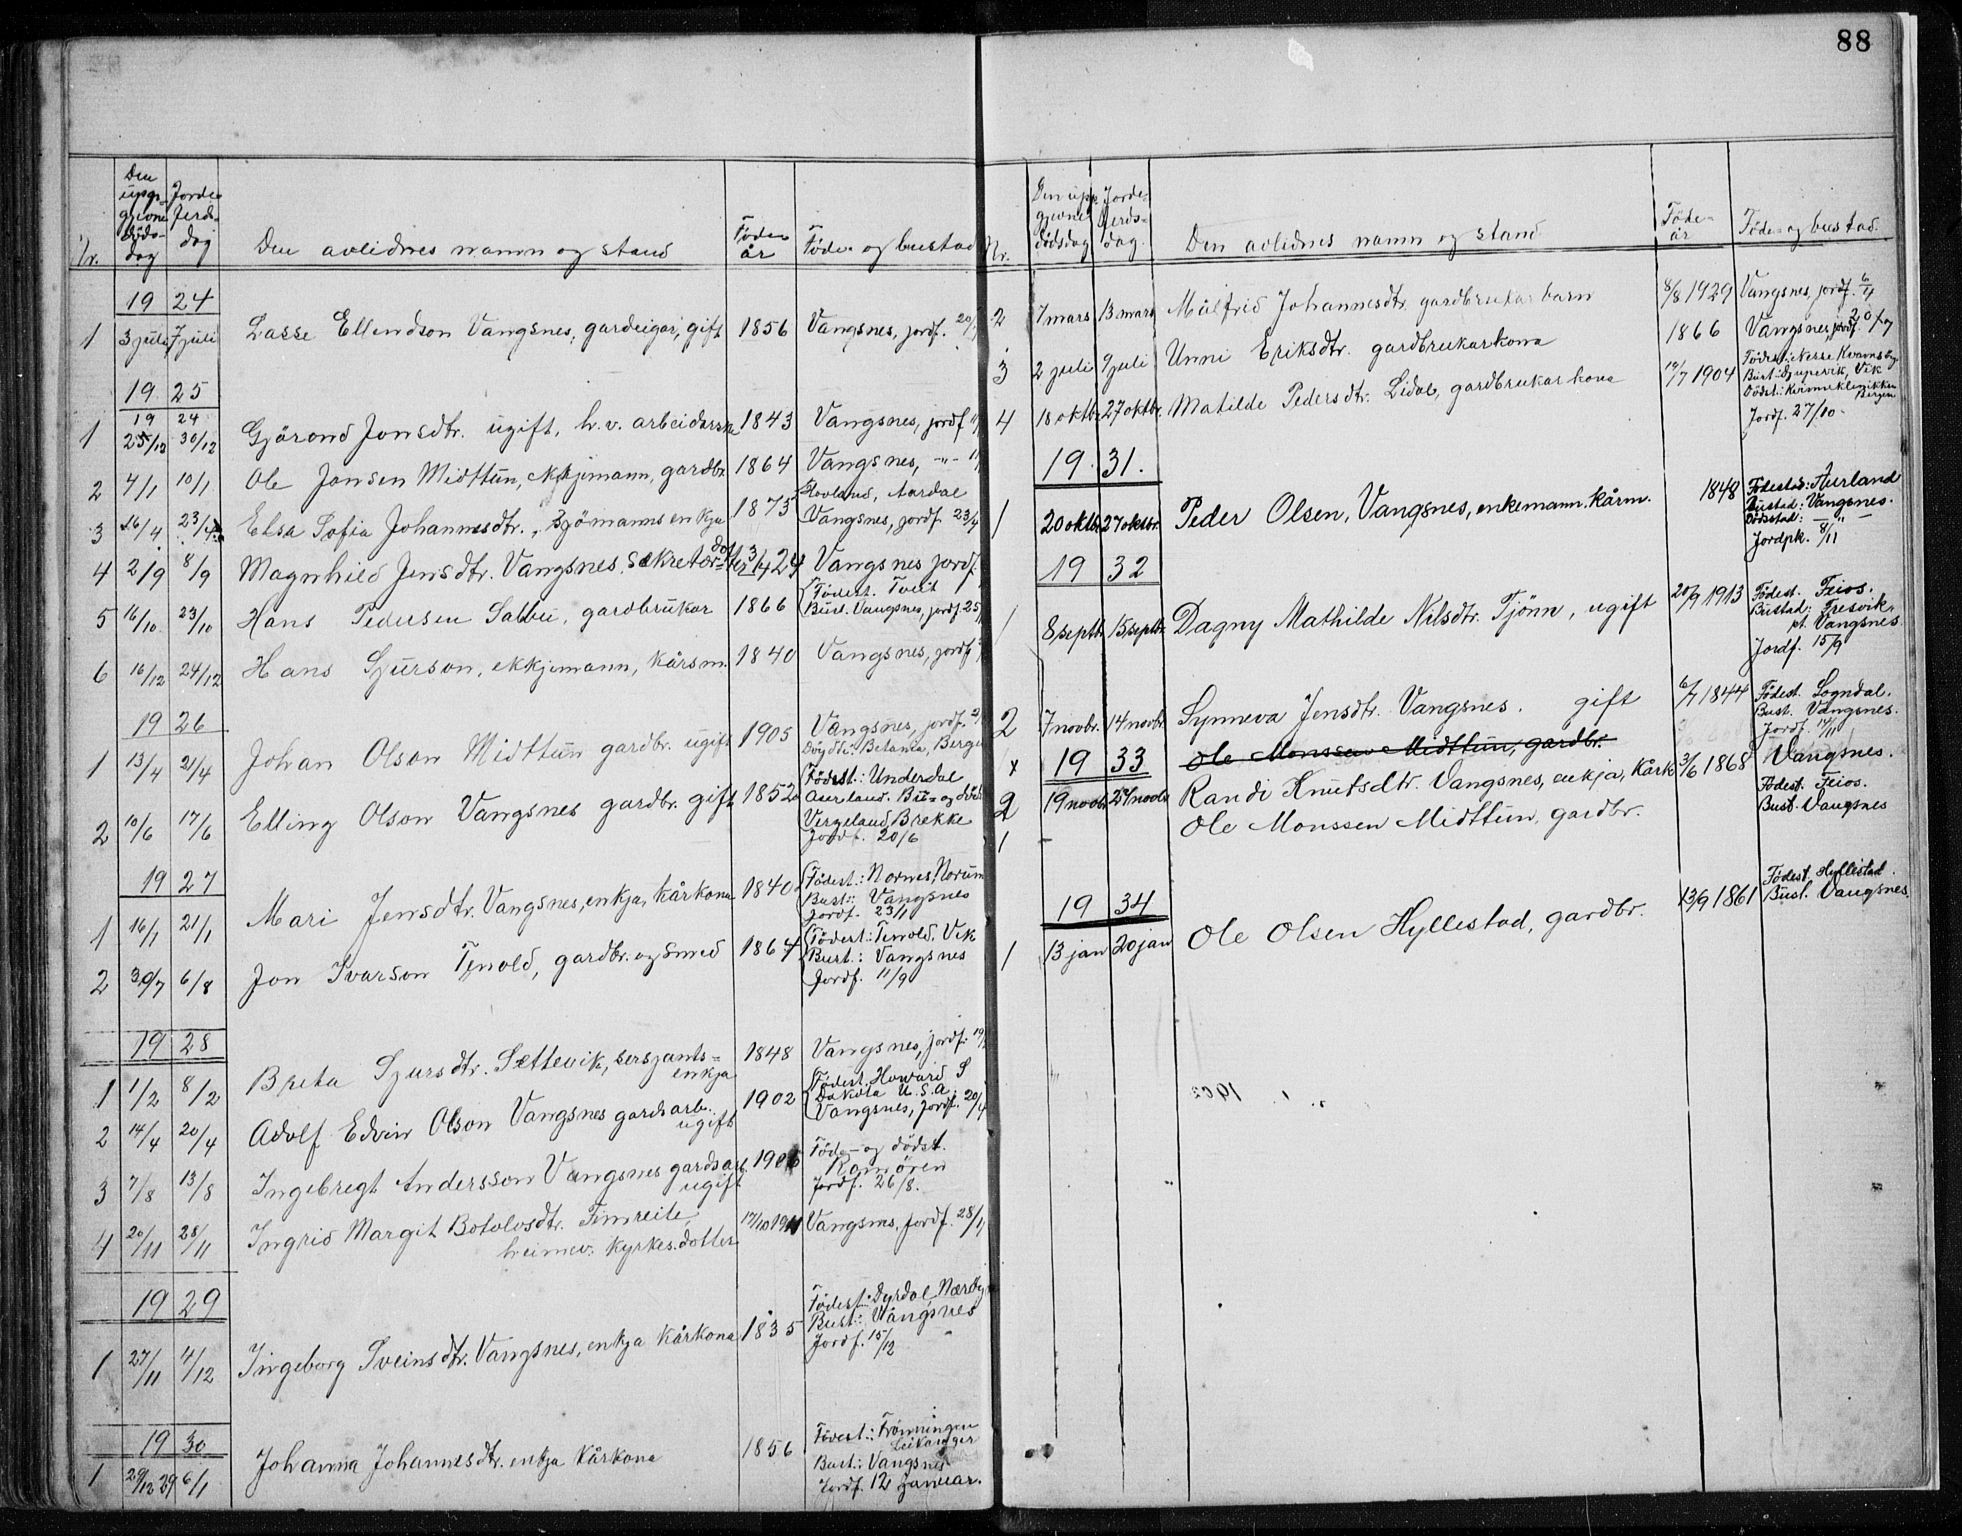 88
Nr. Den uppgjevne dödsdag Jordeferdsdag Den avlidnes namn og stand Föde år Föde og bustad
19 24
1 3 juli 7 juli Lasse Ellendson Vangsnes, gardeigar, gift 1856 Vangsnes, jordf. 20/7
19 25
19 24
1 25/12 30/12 Gjörond Jonsdtr. ugift, h.v. arbeidarske 1843 Vangsnes, jordf.
2 4/1 10/1 Ole Jonsen Midttun, ekkjemann, gardbr. 1864 Vangsnes, -"-
3 16/4 23/4 Elsa Sofia Johannesdtr., Sjömanns enkja 1873 Hovland, Aardal
Vangsnes, jordf. 23/4
4 2/9 8/9 Magnhild Jensdtr. Vangsnes, Sekretær- dotter 3/4 24 Vangsnes jordf.
5 16/10 23/10 Hans Pedersen Salbu, gardbrukar 1866 Födest. Tveit
Bust. Vangsnes, jordf. 25
6 16/12 24/12 Hans Sjurson, ekkjemann, kårsm. 1840 Vangsnes, jordf.
19 26
1 13/4 21/4 Johan Olson Midttun gardbr. ugift 1905 Vangsnes, jordf.
Döydde: Betania, Bergen
2 10/6 17/6 Elling Olson Vangsnes gardbr. gift 1852 Födest.: Underdal
Aurland. Bu- og döds
Vergeland Brekke
Jordf. 20/6
19 27
1 16/1 21/1 Mari Jensdtr. Vangsnes, enkja, kårkona 1840 Födest.: Nornes, Norum
Bust.: Vangsnes
Jordf. 23/1
2 30/7 6/8 Jon Ivarson Tenold, gardbr. og smed 1864 Födest: Tenold, Vik
Bust.: Vangsnes
Jordf. 11/9
19 28
1 1/2 8/2 Breta Sjursdtr. Sættevik, sersjants-
enkja 1848 Vangsnes, jordf. 19/
2 14/4 20/4 Adolf Edvin Olson Vangsnes gardsarb.
ugift 1902 Födest. Howard S
Dakota U.S.A.
Vangsnes, Jordf. 20/4
3 7/8 13/8 Ingebregt Andersson Vangsnes gardsarb
ugift Föde- og dödst.
Ramören
Jordf. 26/8.
4 20/11 28/11 Ingrid Margit Botolvsdtr. Fimreite,
heimev. kyrkes. dotter 17/10 1911 Vangsnes, Jordf. 28/11
19 29
1 27/11 4/12 Ingeborg Sveinsdtr. Vangsnes, enkja kårkona 1835 Födest: Dyrdal Nærøy
Bust.: Vangsnes
Jordf. 15/12
19 30
1 29/12 29 6/1 Johanna Johannesdtr. enkja kårkona 1856 Födest.: Frönningen
Leikanger
Bust.: Vangsnes
Jordf. 12 Januar.
Nr. Den uppgjevne dödsdag Jordeferdsdag. Den avlidnes namn og stand Föde- år Föde- og bustad.
2 7 mars 13 mars Målfrid Johannesdtr. gardbrukar barn 8/8 1929 Vangsnes, jordf. 6/4
3 2 juli 9 juli Unni Eriksdtr. gardbrukarkona 1866 Vangsnes, jordf. 20/7
4 18 oktbr. 27 oktbr. Matilde Pedersdtr. Lidal, gardbrukarkona 19/7 1904 Födest: Nesse Kvamsöy
Bust: Djupevik, Vik
Dödst: Kvinneklinikken
Bergen
Jordf. 27/10-
19 31.
1 20 oktbr 27 oktbr. Peder Olsen, Vangsnes, enkemann. kårm. 1848 Födestad: Aurland
Bustad: Vangsnes.
Dödsstad: -"-
Jordpk. 8/11
19 32
1 8 septbr 15 septbr Dagny Mathilde Nilsdtr. Tjönn, ugift 20/9 1913 Födest. Feios.
Bustad: Fresvik,
pt. Vangsnes.
Jordf. 15/9
2 7 novbr. 14 novbr Synneva Jensdtr. Vangsnes. gift 6/7 1844 Födest. Sogndal.
Bust. Vangsnes.
Jordf. 14/11
x 19 33 Ole Monssen Midttun, gardbr. Vangsnes.
2 19 novbr 25 novbr Randi Knutsdtr. Vangsnes, enkja, kårk 3/6 1868 Födest. Feios.
Bust. Vangsnes
1 - Ole Monssen Midttun, gardbr.
19 34
1 13 jan 20 jan Ole Olsen Hyllestad, gardbr. 13/9 1861 Födest. Hyllestad.
Bust. Vangsnes.